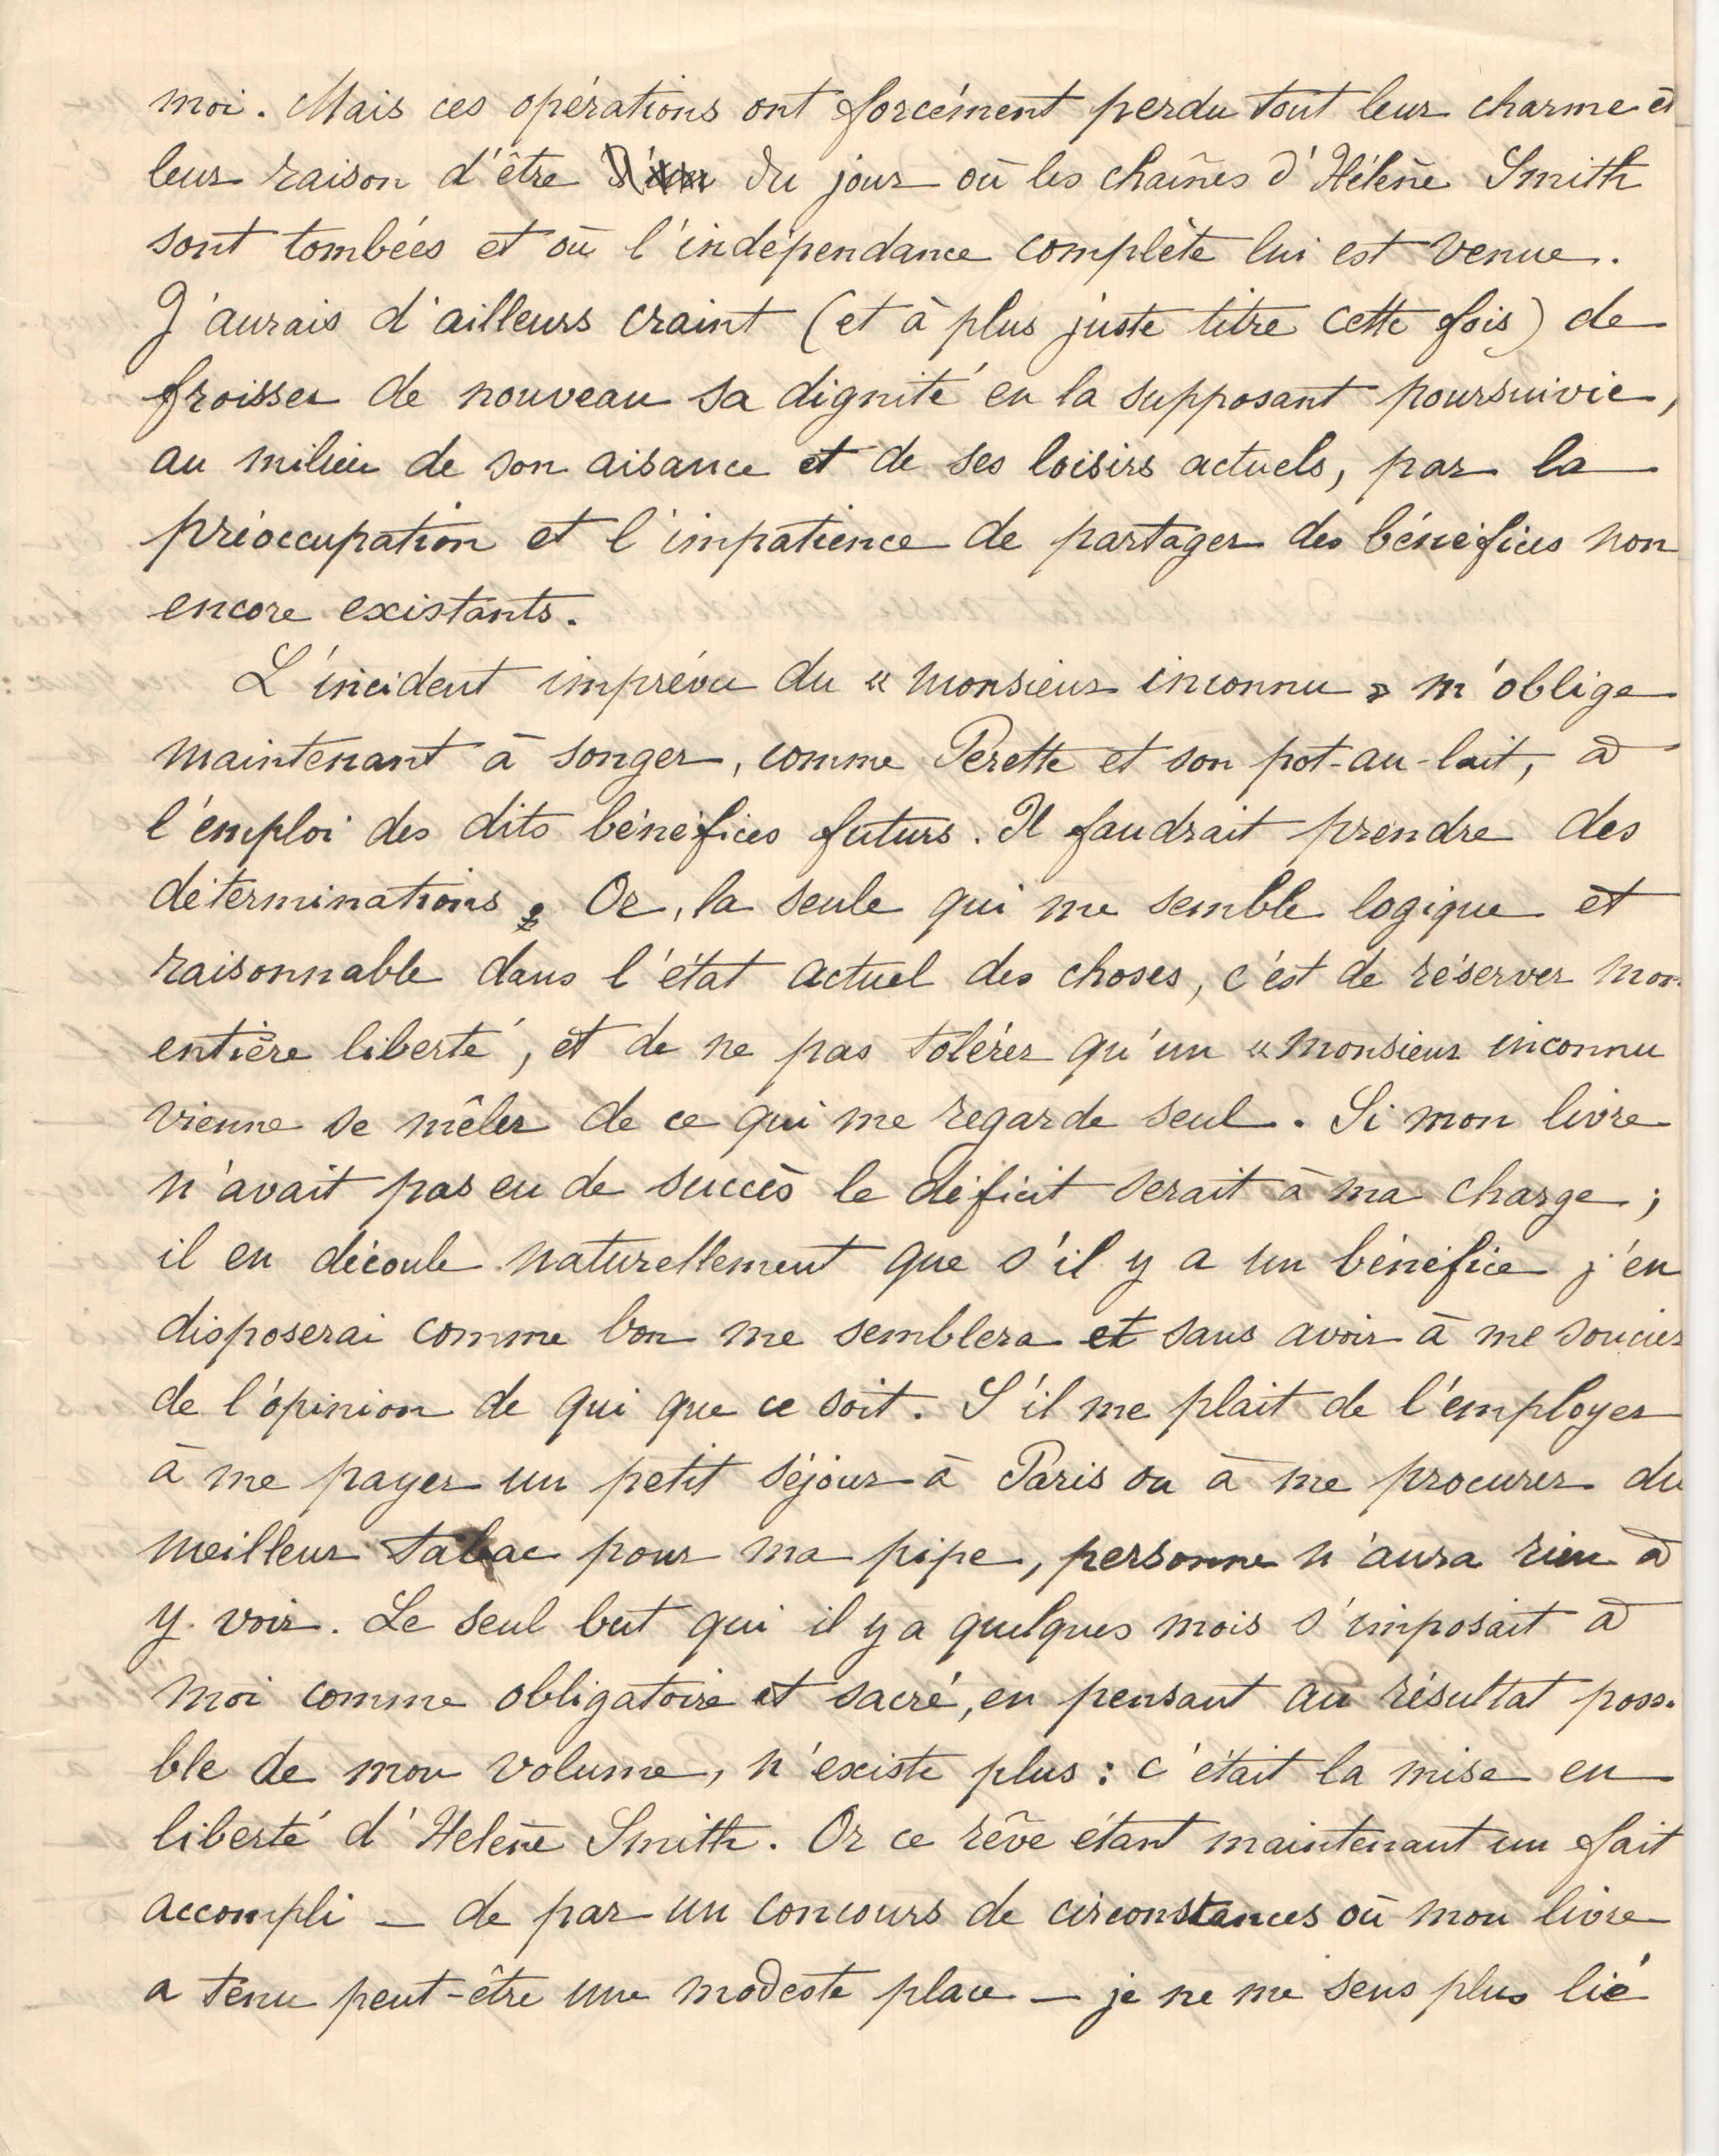 moi. Mais ces opérations ont forcément perdu tout leur charme et
leur raison d'être du jour où les chaînes d'Hélène Smith
sont tombées et où l'indépendance complète lui est venue.
J'aurais d'ailleurs craint (et à plus juste titre cette fois) de
froisser de nouveau sa dignité en la supposant poursuivie,
au milieu de son aisance et de ses loisirs actuels, par la
préoccupation et l'impatience de partager des bénéfices non
encore existants.
L'incident imprévu du « monsieur inconnu » m'oblige
maintenant à songer, comme Perette et son pot-au-lait, à
l'emploi des dits bénéfices futurs. Il faudrait prendre des
déterminations. Or, la seule qui me semble logique et
raisonnable dans l'état actuel des choses, c'est de réserver mon
entière liberté, et de ne pas tolérer qu'un « monsieur inconnu
vienne se mêler de ce qui me regarde seul. Si mon livre
n'avait pas eu de succès le déficit serait à ma charge ;
il en découle naturellement que s'il y a un bénéfice j'en
disposerai comme bon me semblera et sans avoir à me soucier
de l'opinion de qui que ce soit. S'il me plait de l'employer
à me payer un petit séjour à Paris ou à me procurer du
meilleur tabac pour ma pipe, personne n'aura rien à
y voir. Le seul but qui il y a quelques mois s'imposait à
moi comme obligatoire et sacré, en pensant au résultat possi
ble de mon volume, n'existe plus : c'était la mise en
liberté d'Helène Smith. Or ce rêve étant maintenant un fait
accompli — de par un concours de circonstances où mon livre
a tenu peut-être une modeste place — je ne me sens plus lié